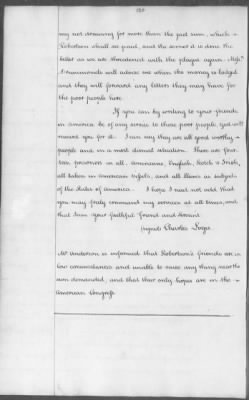 may not drawing for more than the just sum, which
Robertson shall be paid, and the sooner it is done the
better as we are threatened with the plague again. Messrs
Drummonds will advise me when the money is lodged
and they will forward any letters they may have for
the poor people here.
If you can by writing to your friends
in America be of any service to those poor people, god will
reward you for it. I can say they are all good worthy
people and in a most dismal situation. There are four
teen prisoners in all, Americans, English, Scotch & Irish,
all taken in American Vessels, and all Claim as subjects
of the States of America. I hope I need not add that
you may freely command my services at all times, and
that I am your faithful Friend and Servant
(signed) Charles Logie
Mr Anderson is informed that Robertson's friends are in
low circumstances and unable to raise any thing near the
sum demanded, and that their only hopes are in the
American Congress